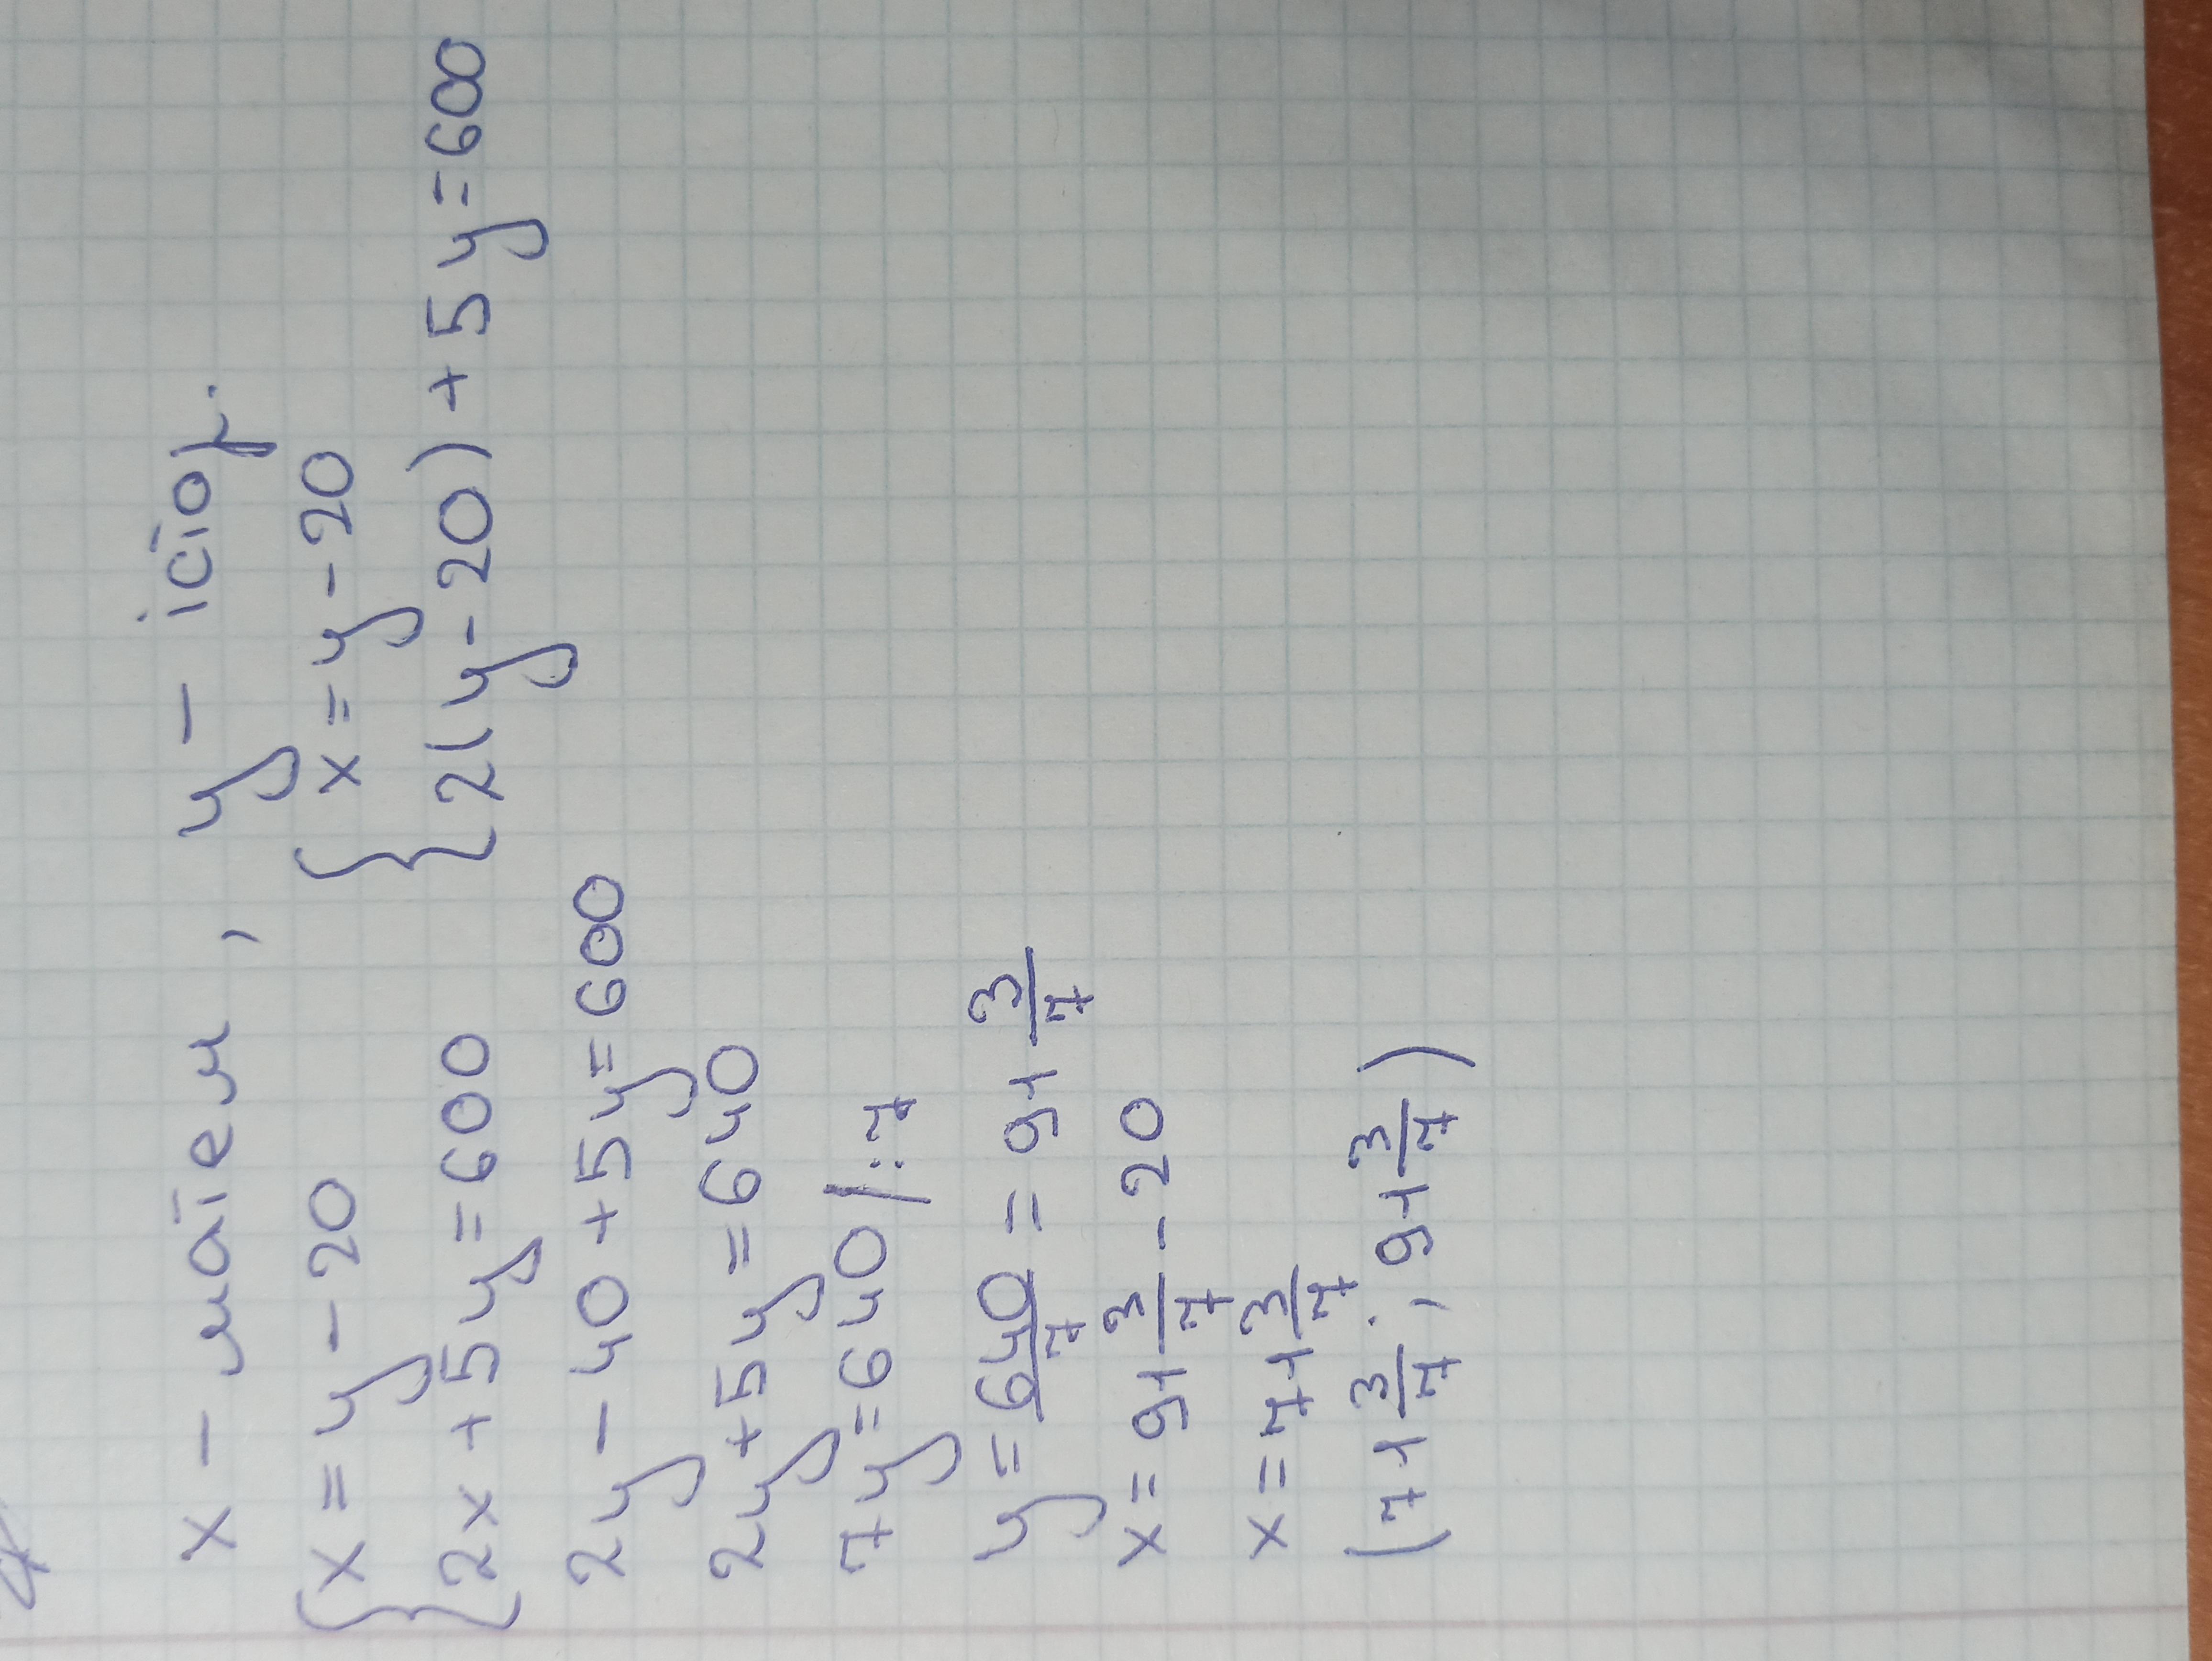 x - матем, y - істор.
{ x = y - 20 { x = y - 20
{ 2x + 5y = 600 { 2(y - 20) + 5y = 600
2y - 40 + 5y = 600
2y + 5y = 640
7y = 640 |:7
y = 640/7 = 91 3/7
x = 91 3/7 - 20
x = 71 3/7
(71 3/7; 91 3/7)